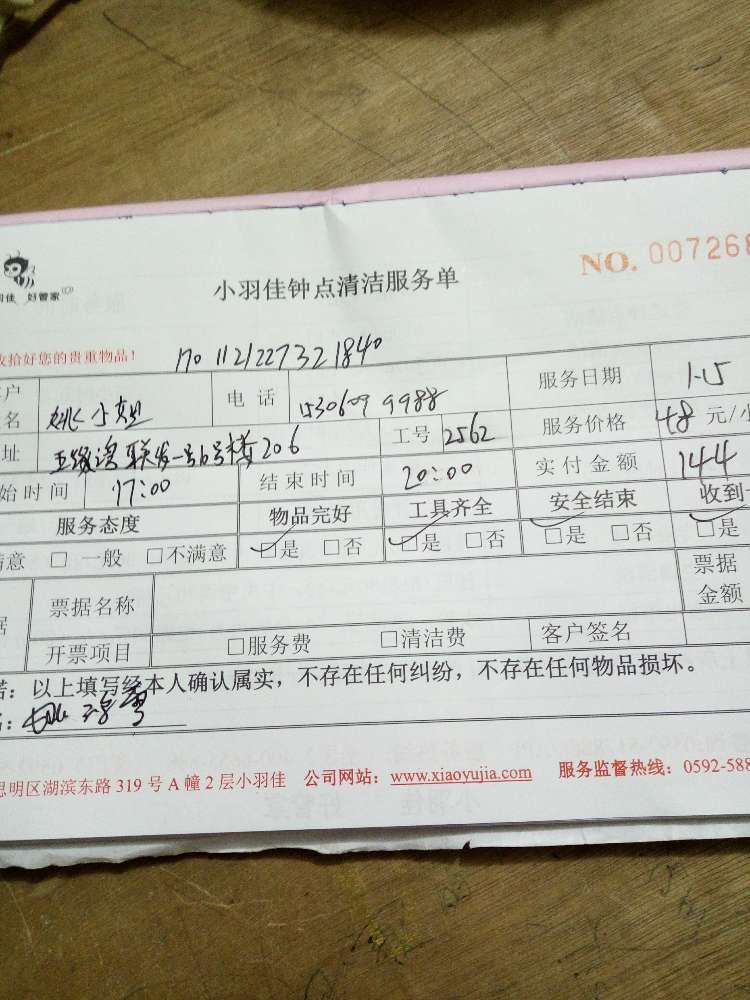 NO. 007268
羽佳 好管家
小羽佳钟点清洁服务单
收拾好您的贵重物品! 170 112122732 1840
户 名 姚小姐 电 话 1530609 9988 服务日期 1-15
址 联发一号6号楼206 工号 2562 服务价格 48 元/小
始时间 17:00 结束时间 20:00 实付金额 144
服务态度 物品完好 工具齐全 安全结束 收到
满意 □ 一般 □不满意 □是 □否 □是 □否 □是 □否 □是
据 票据名称 票据金额
开票项目 □服务费 □清洁费 客户签名
诺:以上填写经本人确认属实,不存在任何纠纷,不存在任何物品损坏。
名:
思明区湖滨东路 319 号 A 幢 2 层小羽佳 公司网站:www.xiaoyujia.com 服务监督热线:0592-588